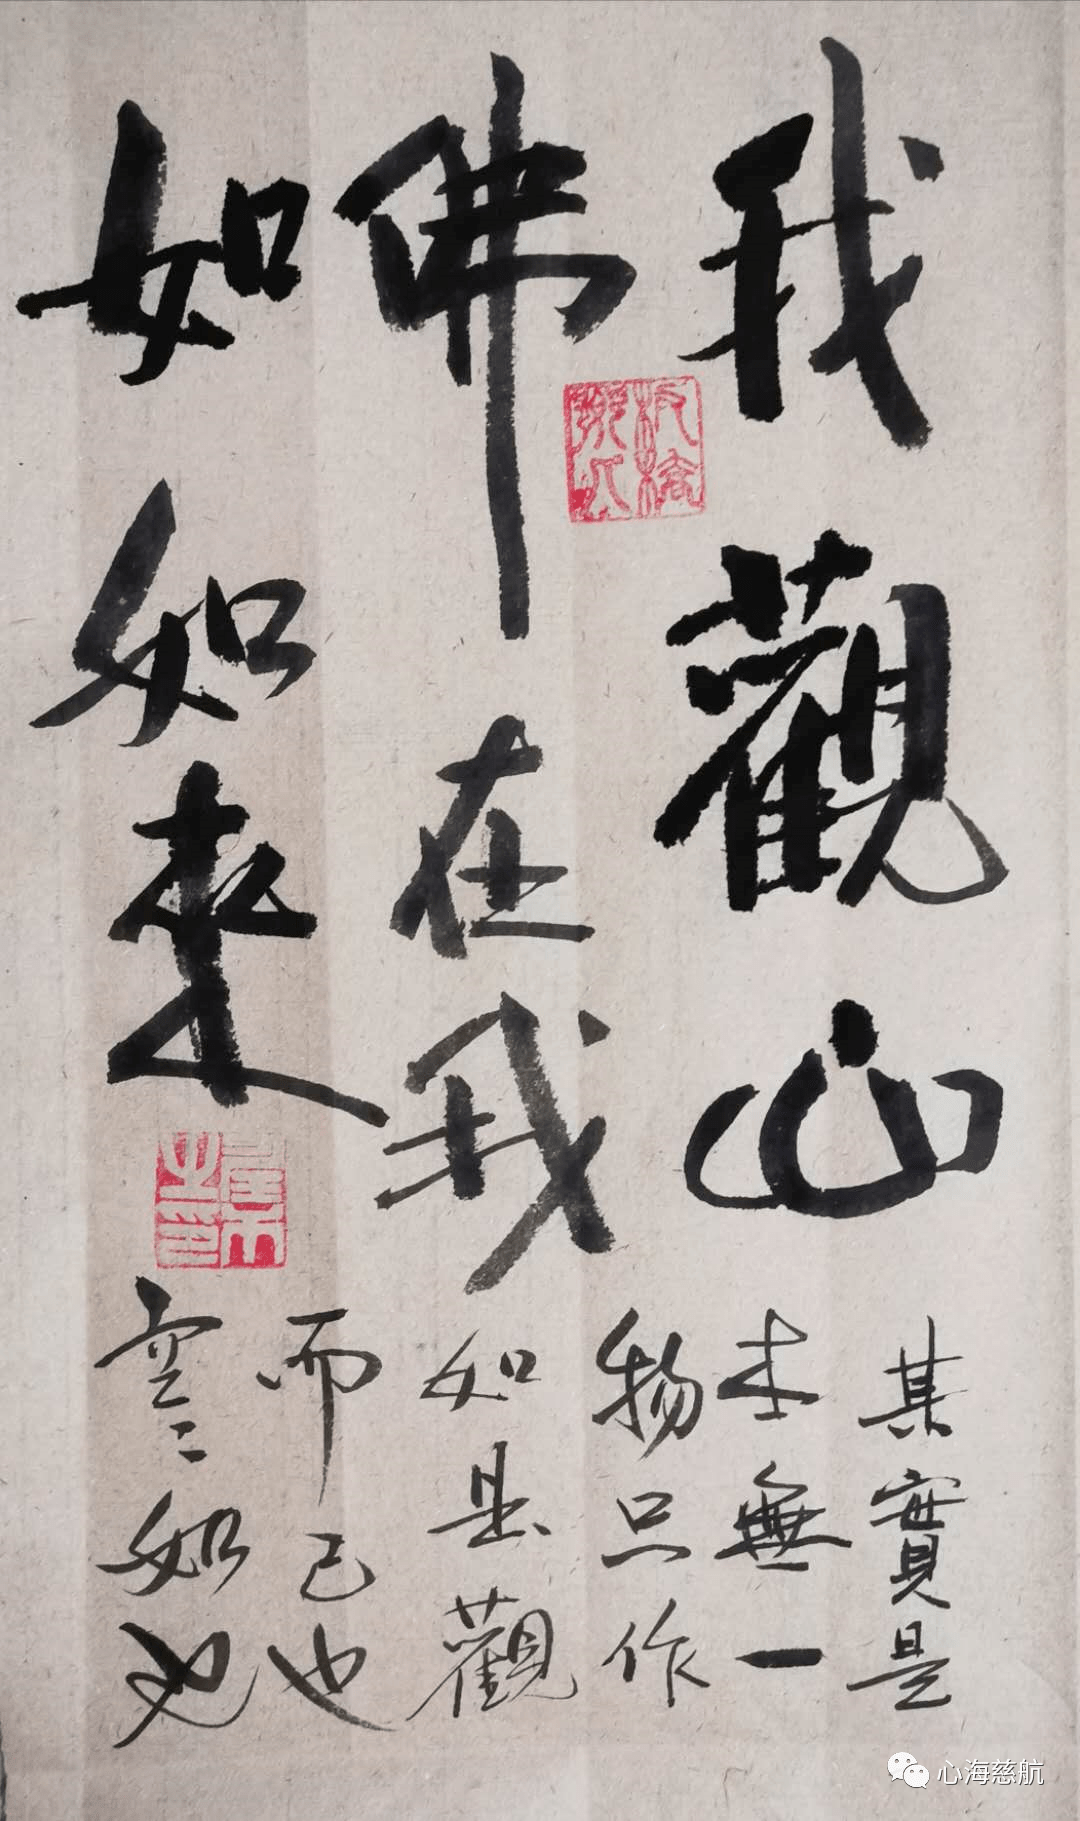 我觀山
佛在我
如如來
其實是
本無一
物只作
如是觀
而已也
空空如也
心海慈航